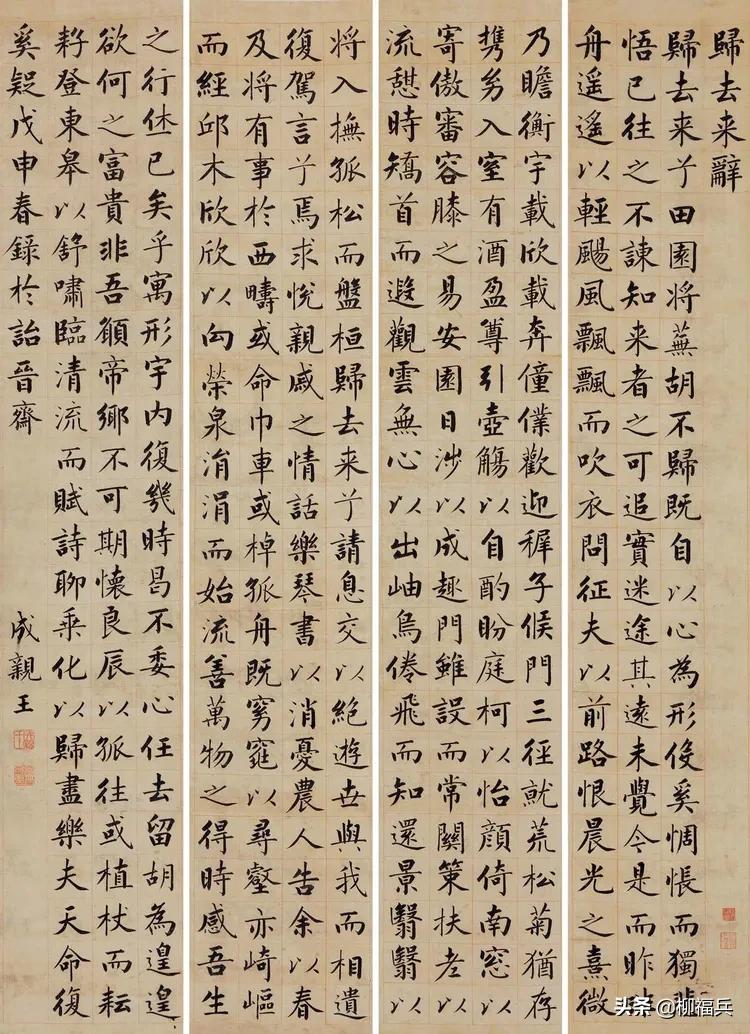 歸去来辭
歸去来兮田園将蕪胡不歸既自以心為形役奚惆悵而獨悲
悟已往之不諫知来者之可追實迷途其遠未覺今是而昨
舟遥遥以輕颺風飄飄而吹衣問征夫以前路恨晨光之熹微
乃瞻衡宇載欣載奔僮僕歡迎稺子候門三徑就荒松菊猶存
携幼入室有酒盈罇引壺觴以自酌盼庭柯以怡顏倚南窓以
寄傲審容膝之易安園日涉以成趣門雖設而常關策扶老以
流憇時矯首而遐觀雲無心以出岫鳥倦飛而知還景翳翳以
将入撫孤松而盤桓歸去来兮請息交以絶遊世與我而相遺
復駕言兮焉求悅親戚之情話樂琴書以消憂農人告余以春
及将有事於西疇或命巾車或棹孤舟既窈窕以尋壑亦崎嶇
而經邱木欣欣以向榮泉涓涓而始流善萬物之得時感吾生
之行休已矣乎寓形宇内復幾時曷不委心任去留胡為遑遑
欲何之富貴非吾願帝鄉不可期懷良辰以孤往或植杖而耘
耔登東皋以舒嘯臨清流而賦詩聊乘化以歸盡樂夫天命復
奚疑戊申春錄於詒晉齋
成親王
头条 @柳福兵